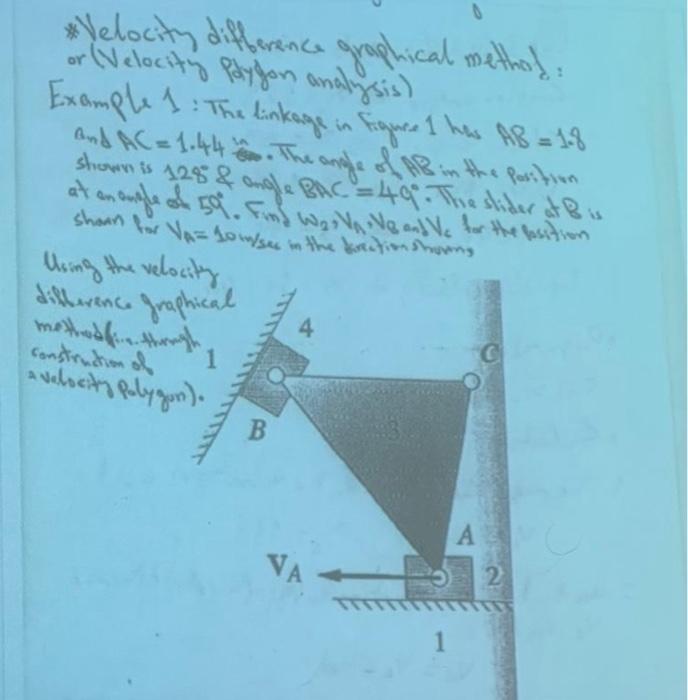 *Velocity difference graphical method:
or (Velocity Polygon analysis)
Example 1: The linkage in Figure 1 has AB = 1.8
and AC = 1.44 in. The angle of AB in the position
shown is 128° & angle BAC = 49°. The slider at B is
at an angle of 59°. Find ω2, VA, VB and VC for the position
shown for VA = 10 in/sec in the direction shown,
Using the velocity
difference graphical
method (i.e. through
construction of
a velocity Polygon).
4
1
C
B
3
A
VA
2
1